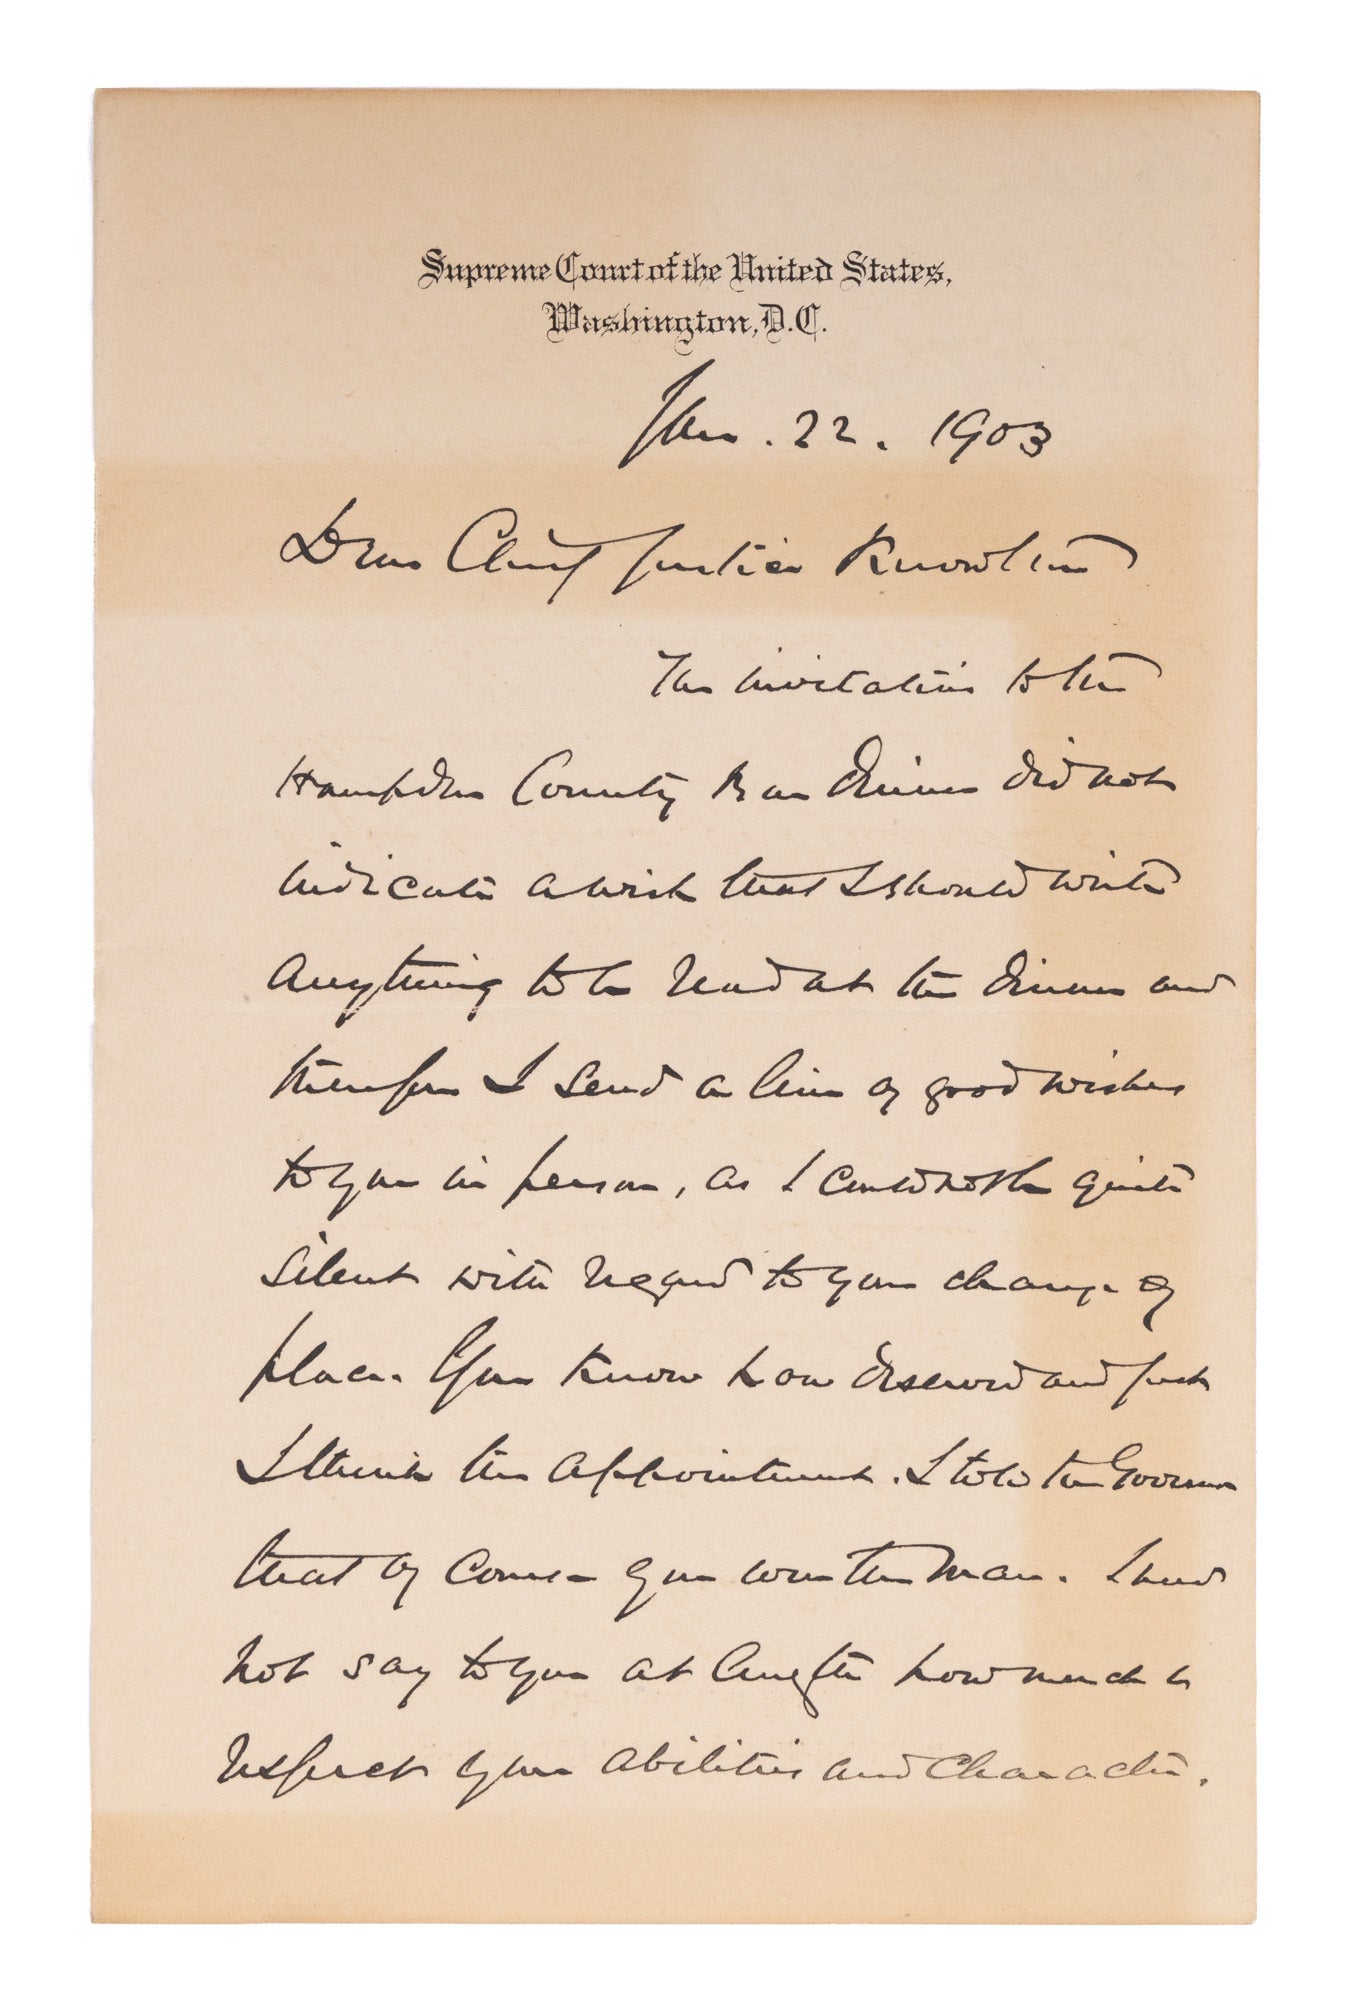 Supreme Court of the United States,
Washington, D.C.
Jan. 22. 1903
Dear Chief Justice Knowlton
The invitation to the
Hampden County Bar dinner did not
indicate a wish that I should write
anything to be read at the dinner and
therefore I send a line of good wishes
to you in person, as I could not be quite
silent with regard to your change of
place. You know how deserved and just
I think the appointment. I told the Governor
that of course you were the man. I need
not say to you at length how much I
respect your abilities and character.